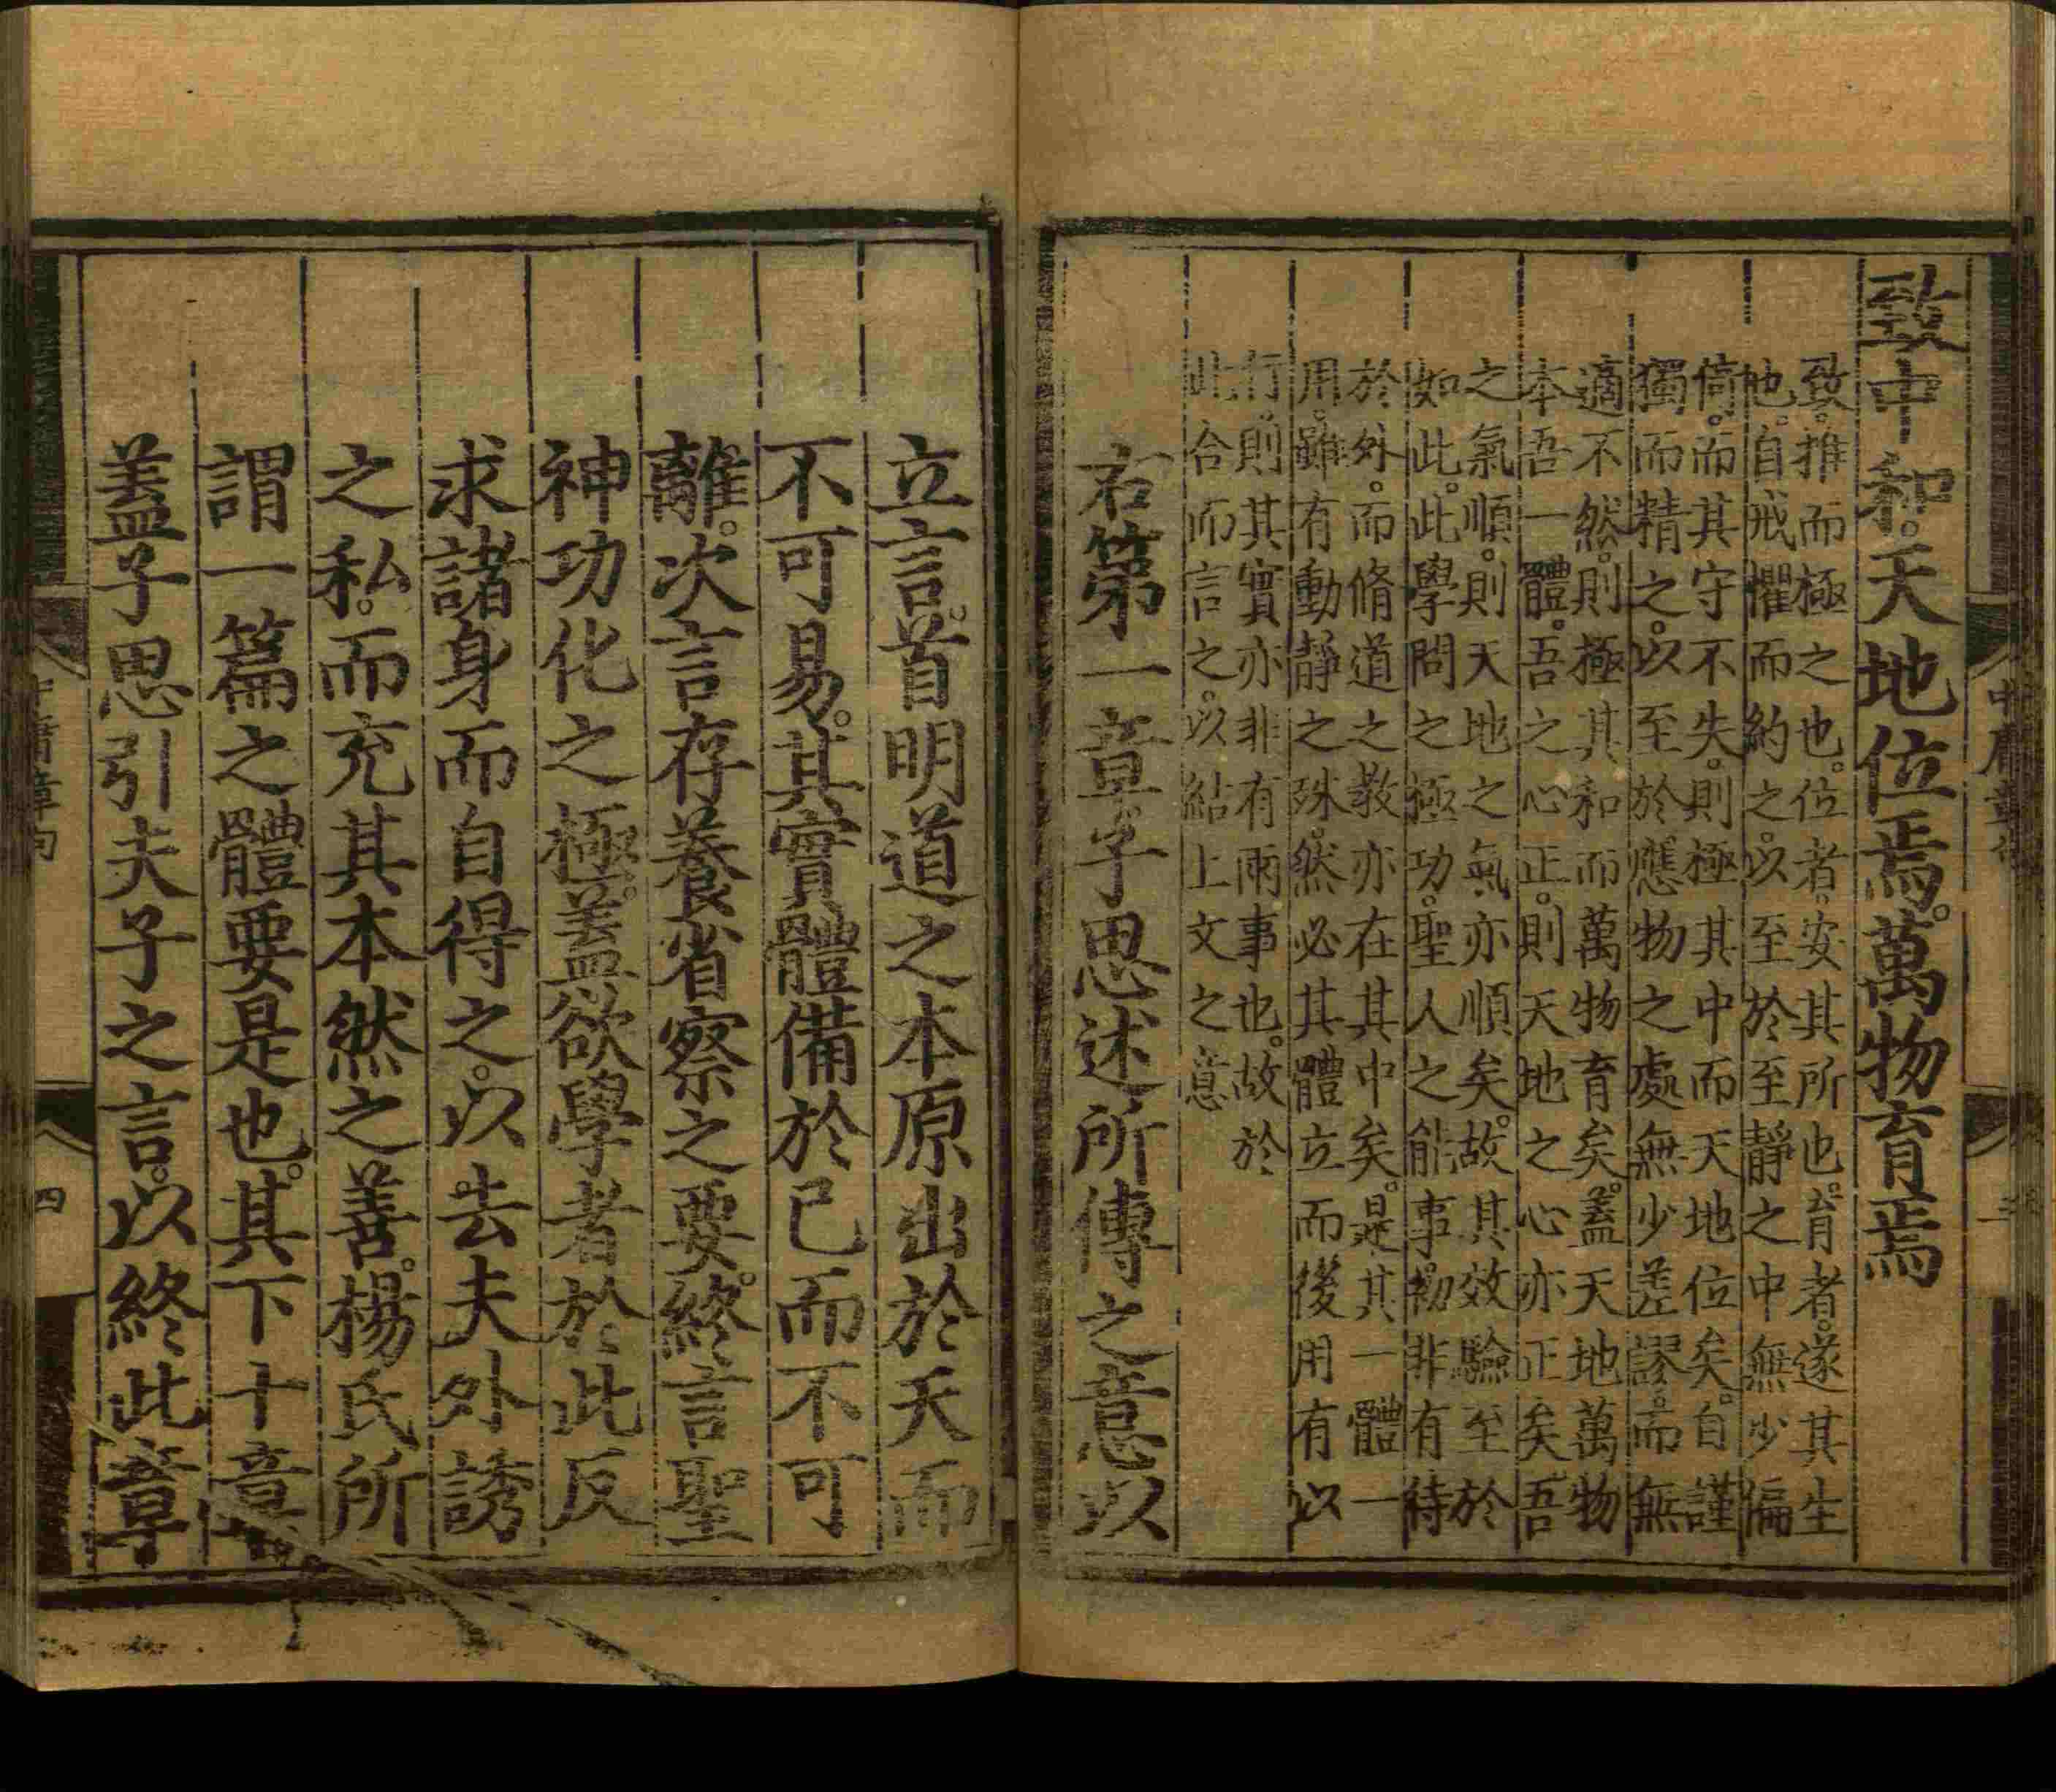 致中和。天地位焉。萬物育焉
致。推而極之也。位者。安其所也。育者。遂其生
也。自戒懼而約之。以至於至靜之中無少偏
倚。而其守不失。則極其中而天地位矣。自謹
獨而精之。以至於應物之處無少差謬。而無
適不然。則極其和而萬物育矣。蓋天地萬物
本吾一體。吾之心正。則天地之心亦正矣吾
之氣順。則天地之氣亦順矣。故其效驗至於
如此。此學問之極功。聖人之能事。初非有待
於外。而脩道之教亦在其中矣。是其一體一
用。雖有動靜之殊。然必其體立而後用有以
行。則其實亦非有兩事也。故於
此合而言之。以結上文之意
右第一章子思述所傳之意以
立言。首明道之本原出於天而
不可易。其實體備於己而不可
離。次言存養省察之要。終言聖
神功化之極。蓋欲學者於此反
求諸身而自得之。以去夫外誘
之私。而充其本然之善。楊氏所
謂一篇之體要是也。其下十章
蓋子思引夫子之言。以終此章
四